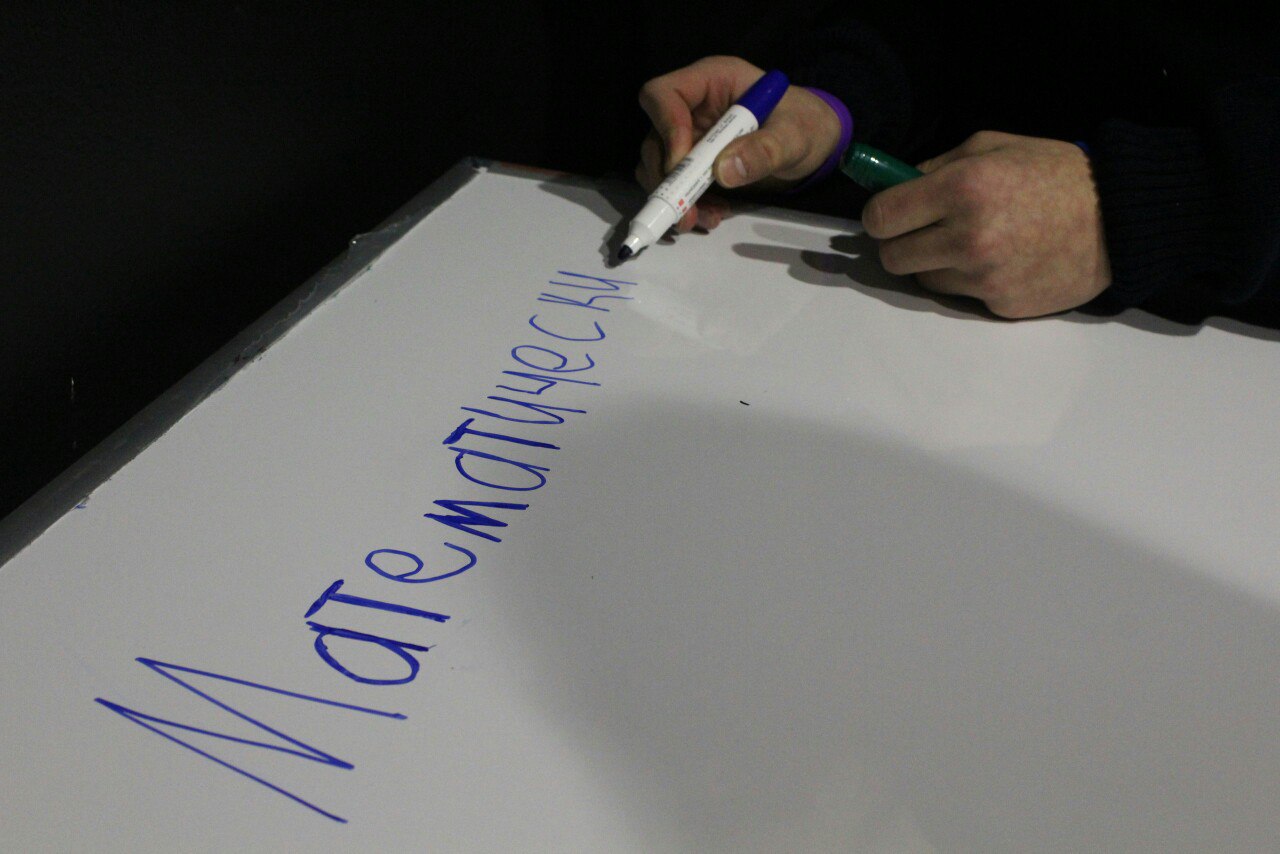 Математически